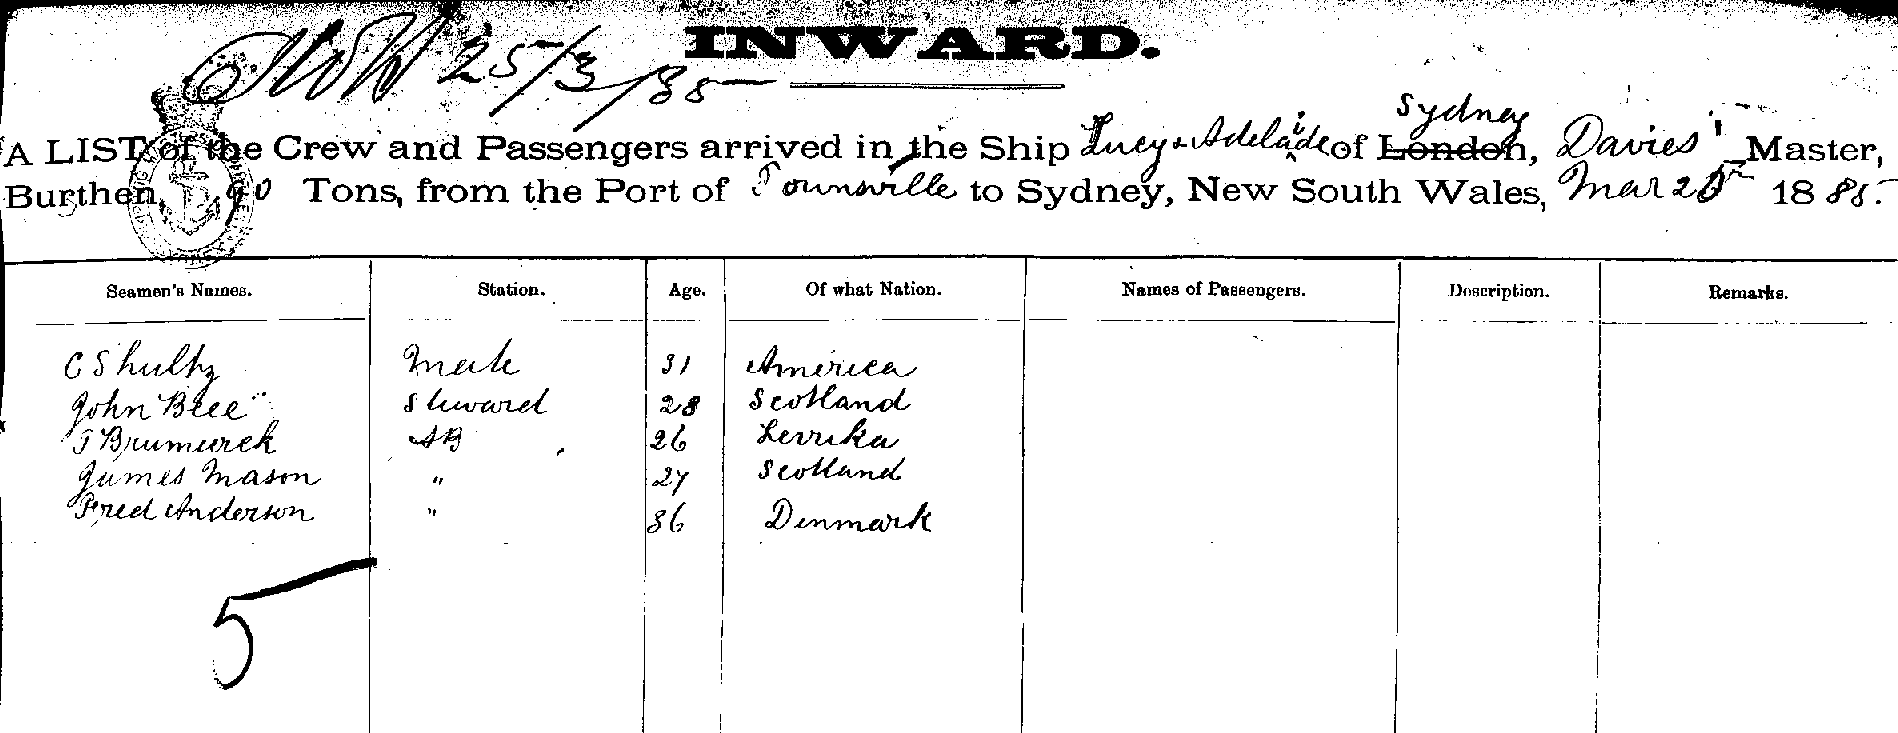 INWARD.
25/3/85
Sydney
A LIST of the Crew and Passengers arrived in the Ship Lucy & Adelaide of London, Davies Master,
Burthen, 90 Tons, from the Port of Townsville to Sydney, New South Wales, Mar 25 1885.
Seamen's Names. Station. Age. Of what Nation. Names of Passengers. Description. Remarks.
C Shultz Mate 31 America
John Blee Steward 28 Scotland
AB 26 Levuka
James Mason " 27 Scotland
Fred Anderson " 36 Denmark
5